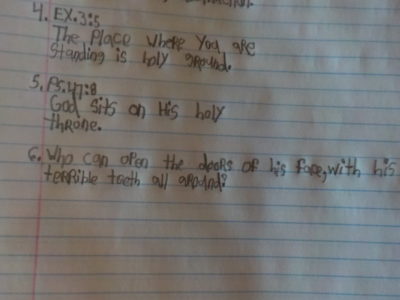 4. EX.3:5
The Place Where You are
Standing is holy ground.
5. PS.47:8
God sits on His holy
throne.
6. Who can open the doors of his face, with his
terrible teeth all around?